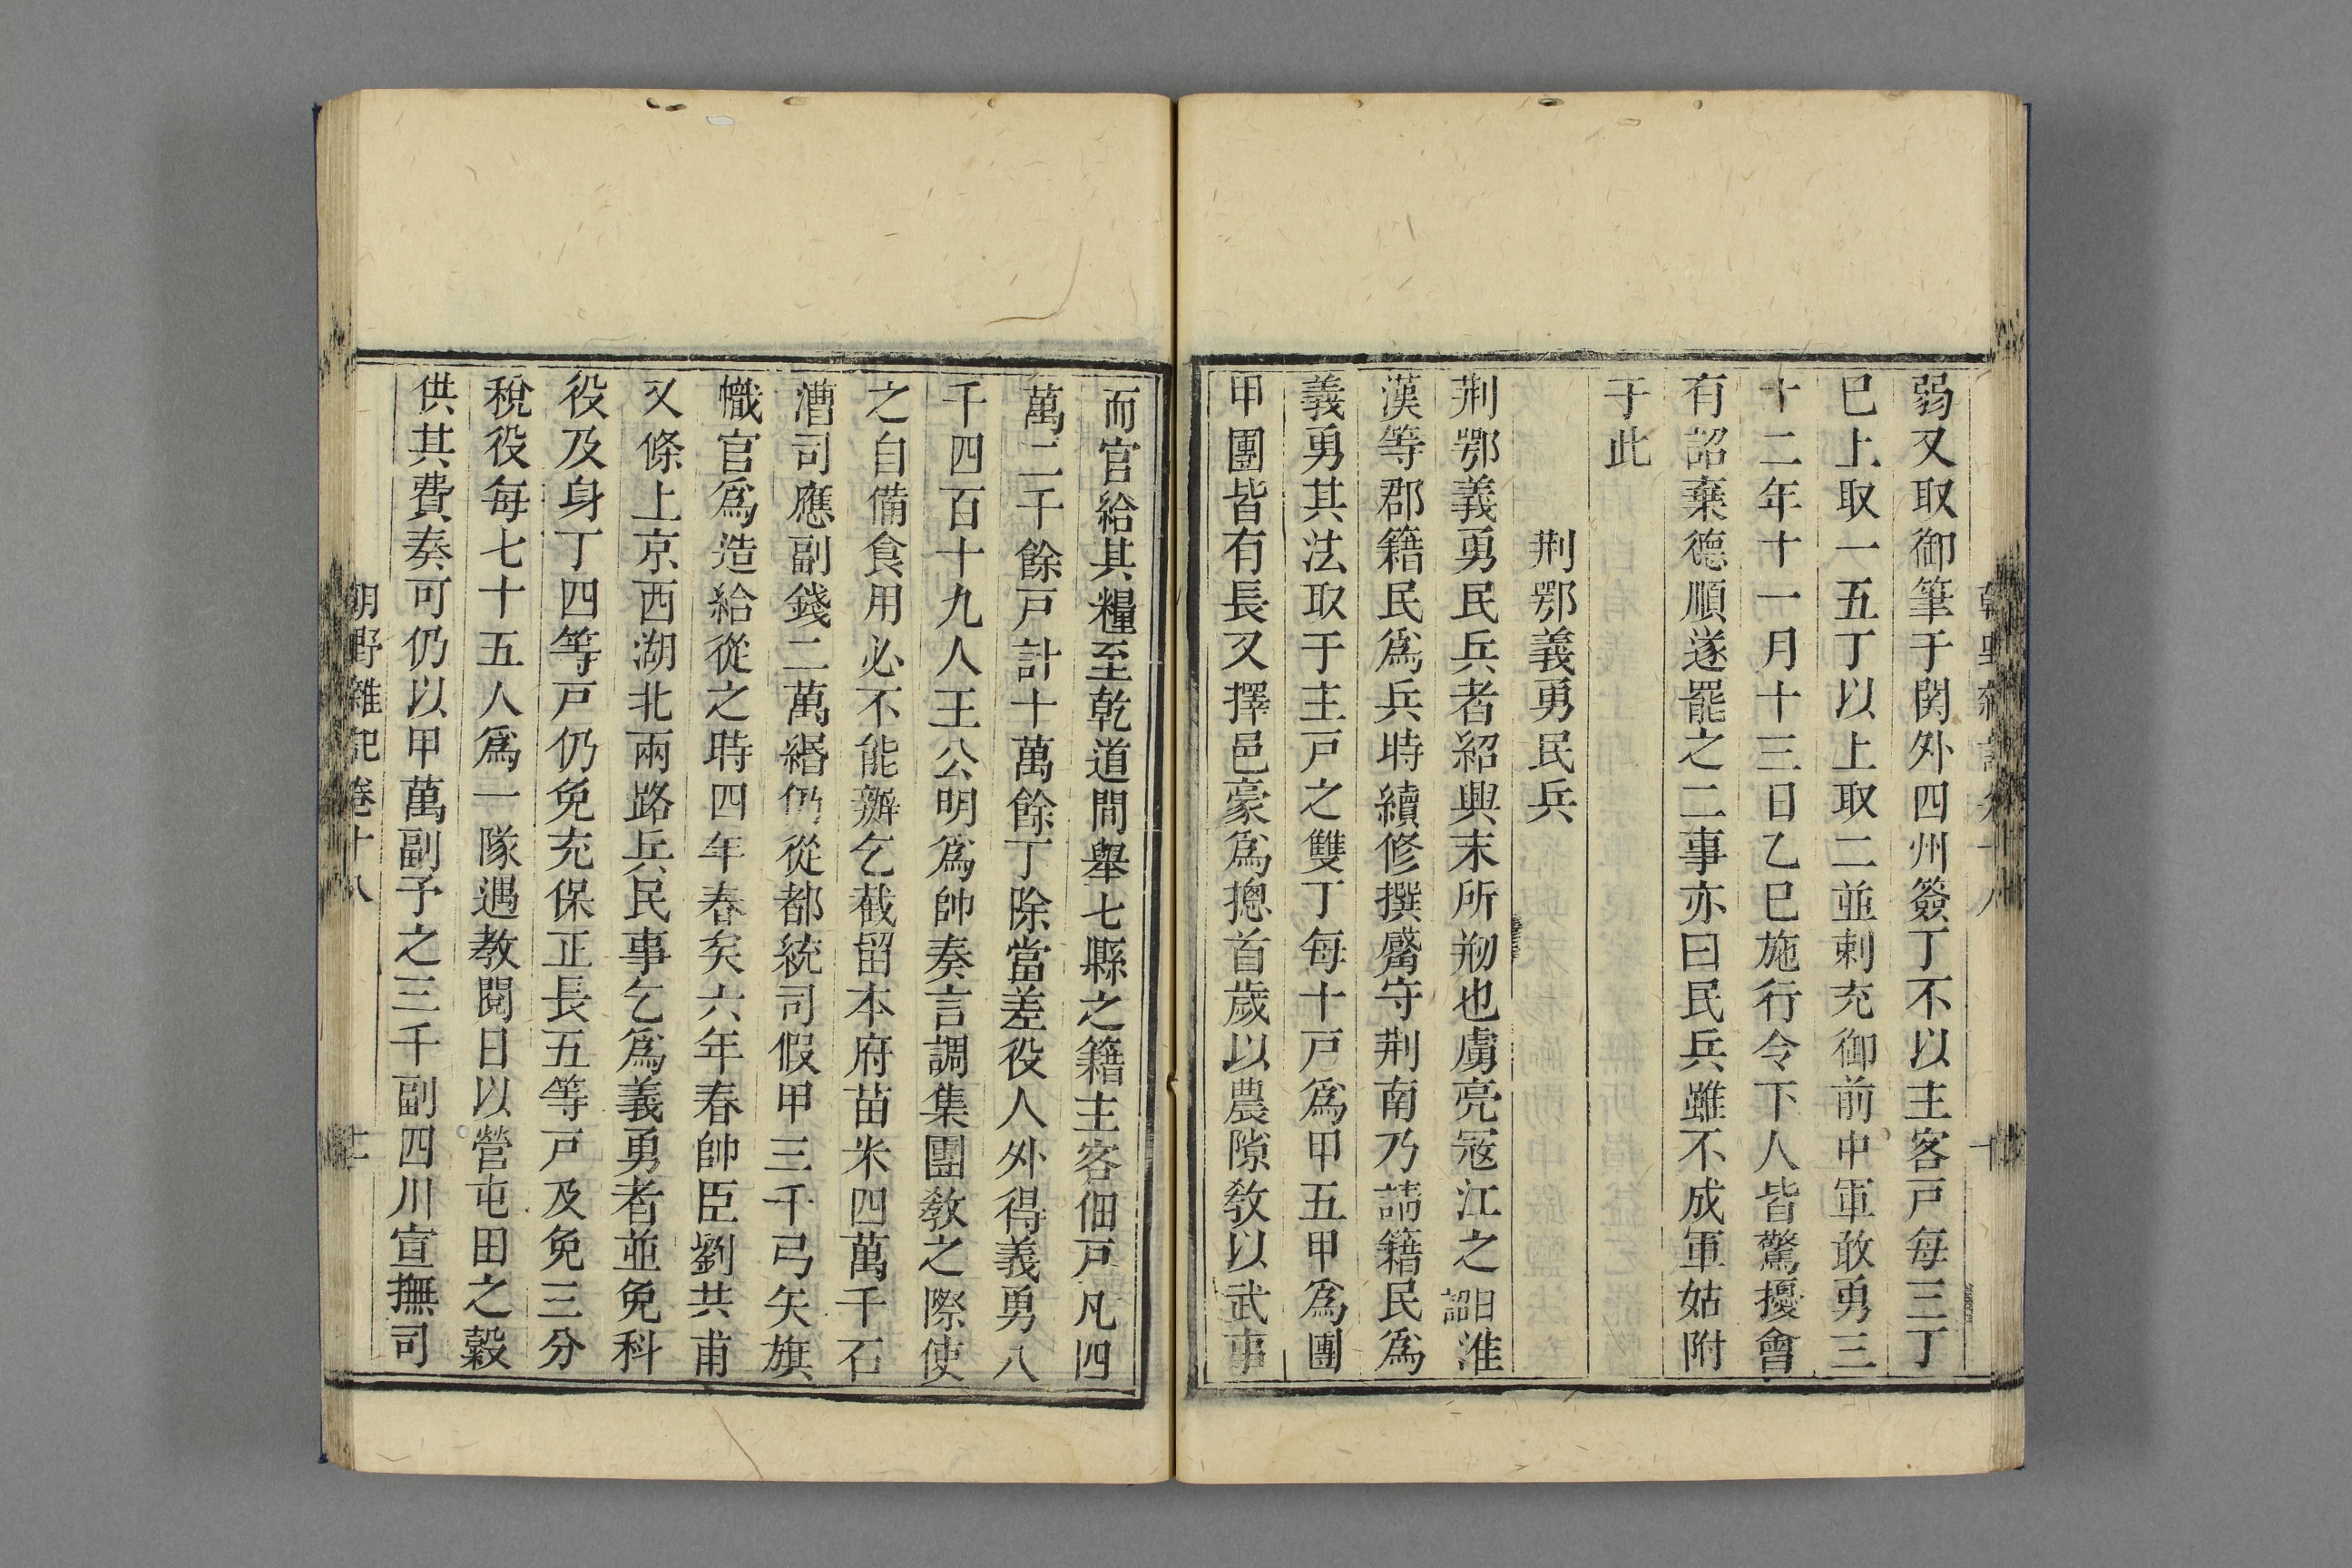 弱又取御筆于関外四州簽丁不以主客戸每三丁
巳上取一五丁以上取二並刺充御前中軍敢勇三
十二年十一月十三日乙巳施行令下人皆驚擾會
有詔棄德順遂罷之二事亦曰民兵雖不成軍姑附
于此
荆鄂義勇民兵
荆鄂義勇民兵者紹興末所刱也虜亮寇江之日詔淮
漢等郡籍民爲兵時續修撰觱守荆南乃請籍民爲
義勇其法取于主戸之雙丁每十戸爲甲五甲爲團
甲團皆有長又擇邑豪爲摠首歲以農隙敎以武事
而官給其糧至乾道間舉七縣之籍主客佃戸凡四
萬二千餘戸計十萬餘丁除當差役人外得義勇八
千四百十九人王公明爲帥奏言調集團敎之際使
之自備食用必不能辦乞截留本府苗米四萬千石
漕司應副錢二萬緡仍從都統司假甲三千弓矢旗
幟官爲造給從之時四年春矣六年春帥臣劉共甫
又條上京西湖北兩路兵民事乞爲義勇者並免科
役及身丁四等戸仍免充保正長五等戸及免三分
稅役每七十五人爲一隊遇教閱日以營屯田之穀
供其費奏可仍以甲萬副予之三千副四川宣撫司
朝野雜記卷十八